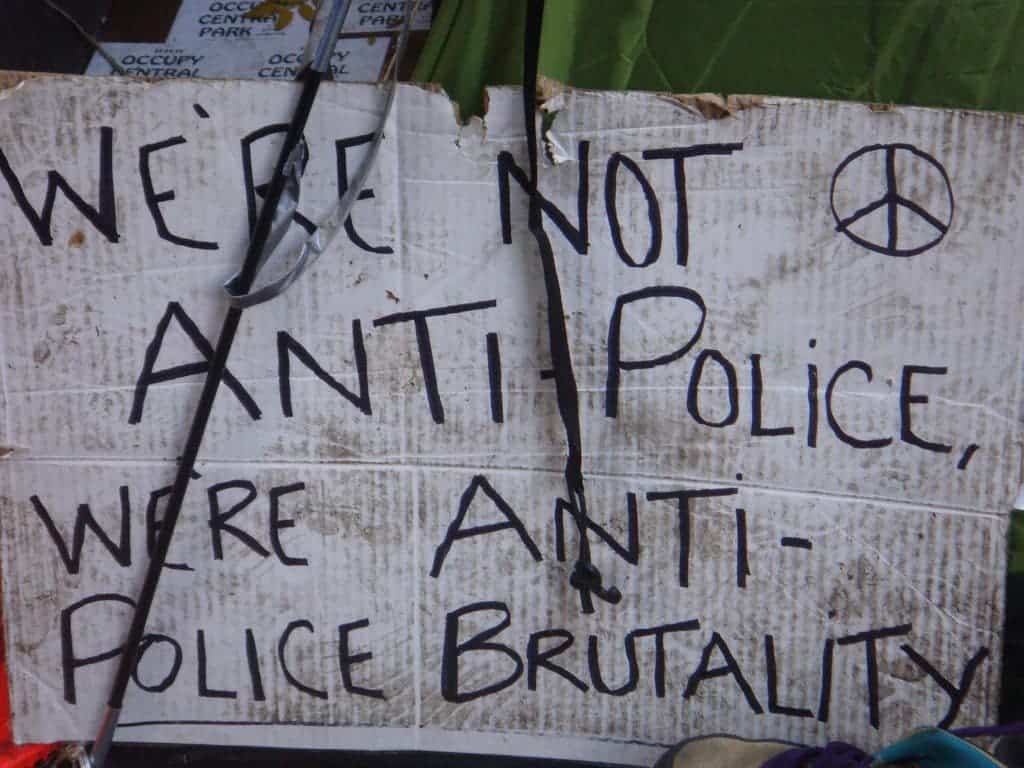 OCCUPY
CENTRAL
PARK
OCCUPY
CENTRAL
PARK
OCCUPY
CENTRAL
OCCUPY
CENTRAL
WE'RE NOT
ANTi-POLiCE,
WE'RE ANTi-
POLICE BRUTALiTY